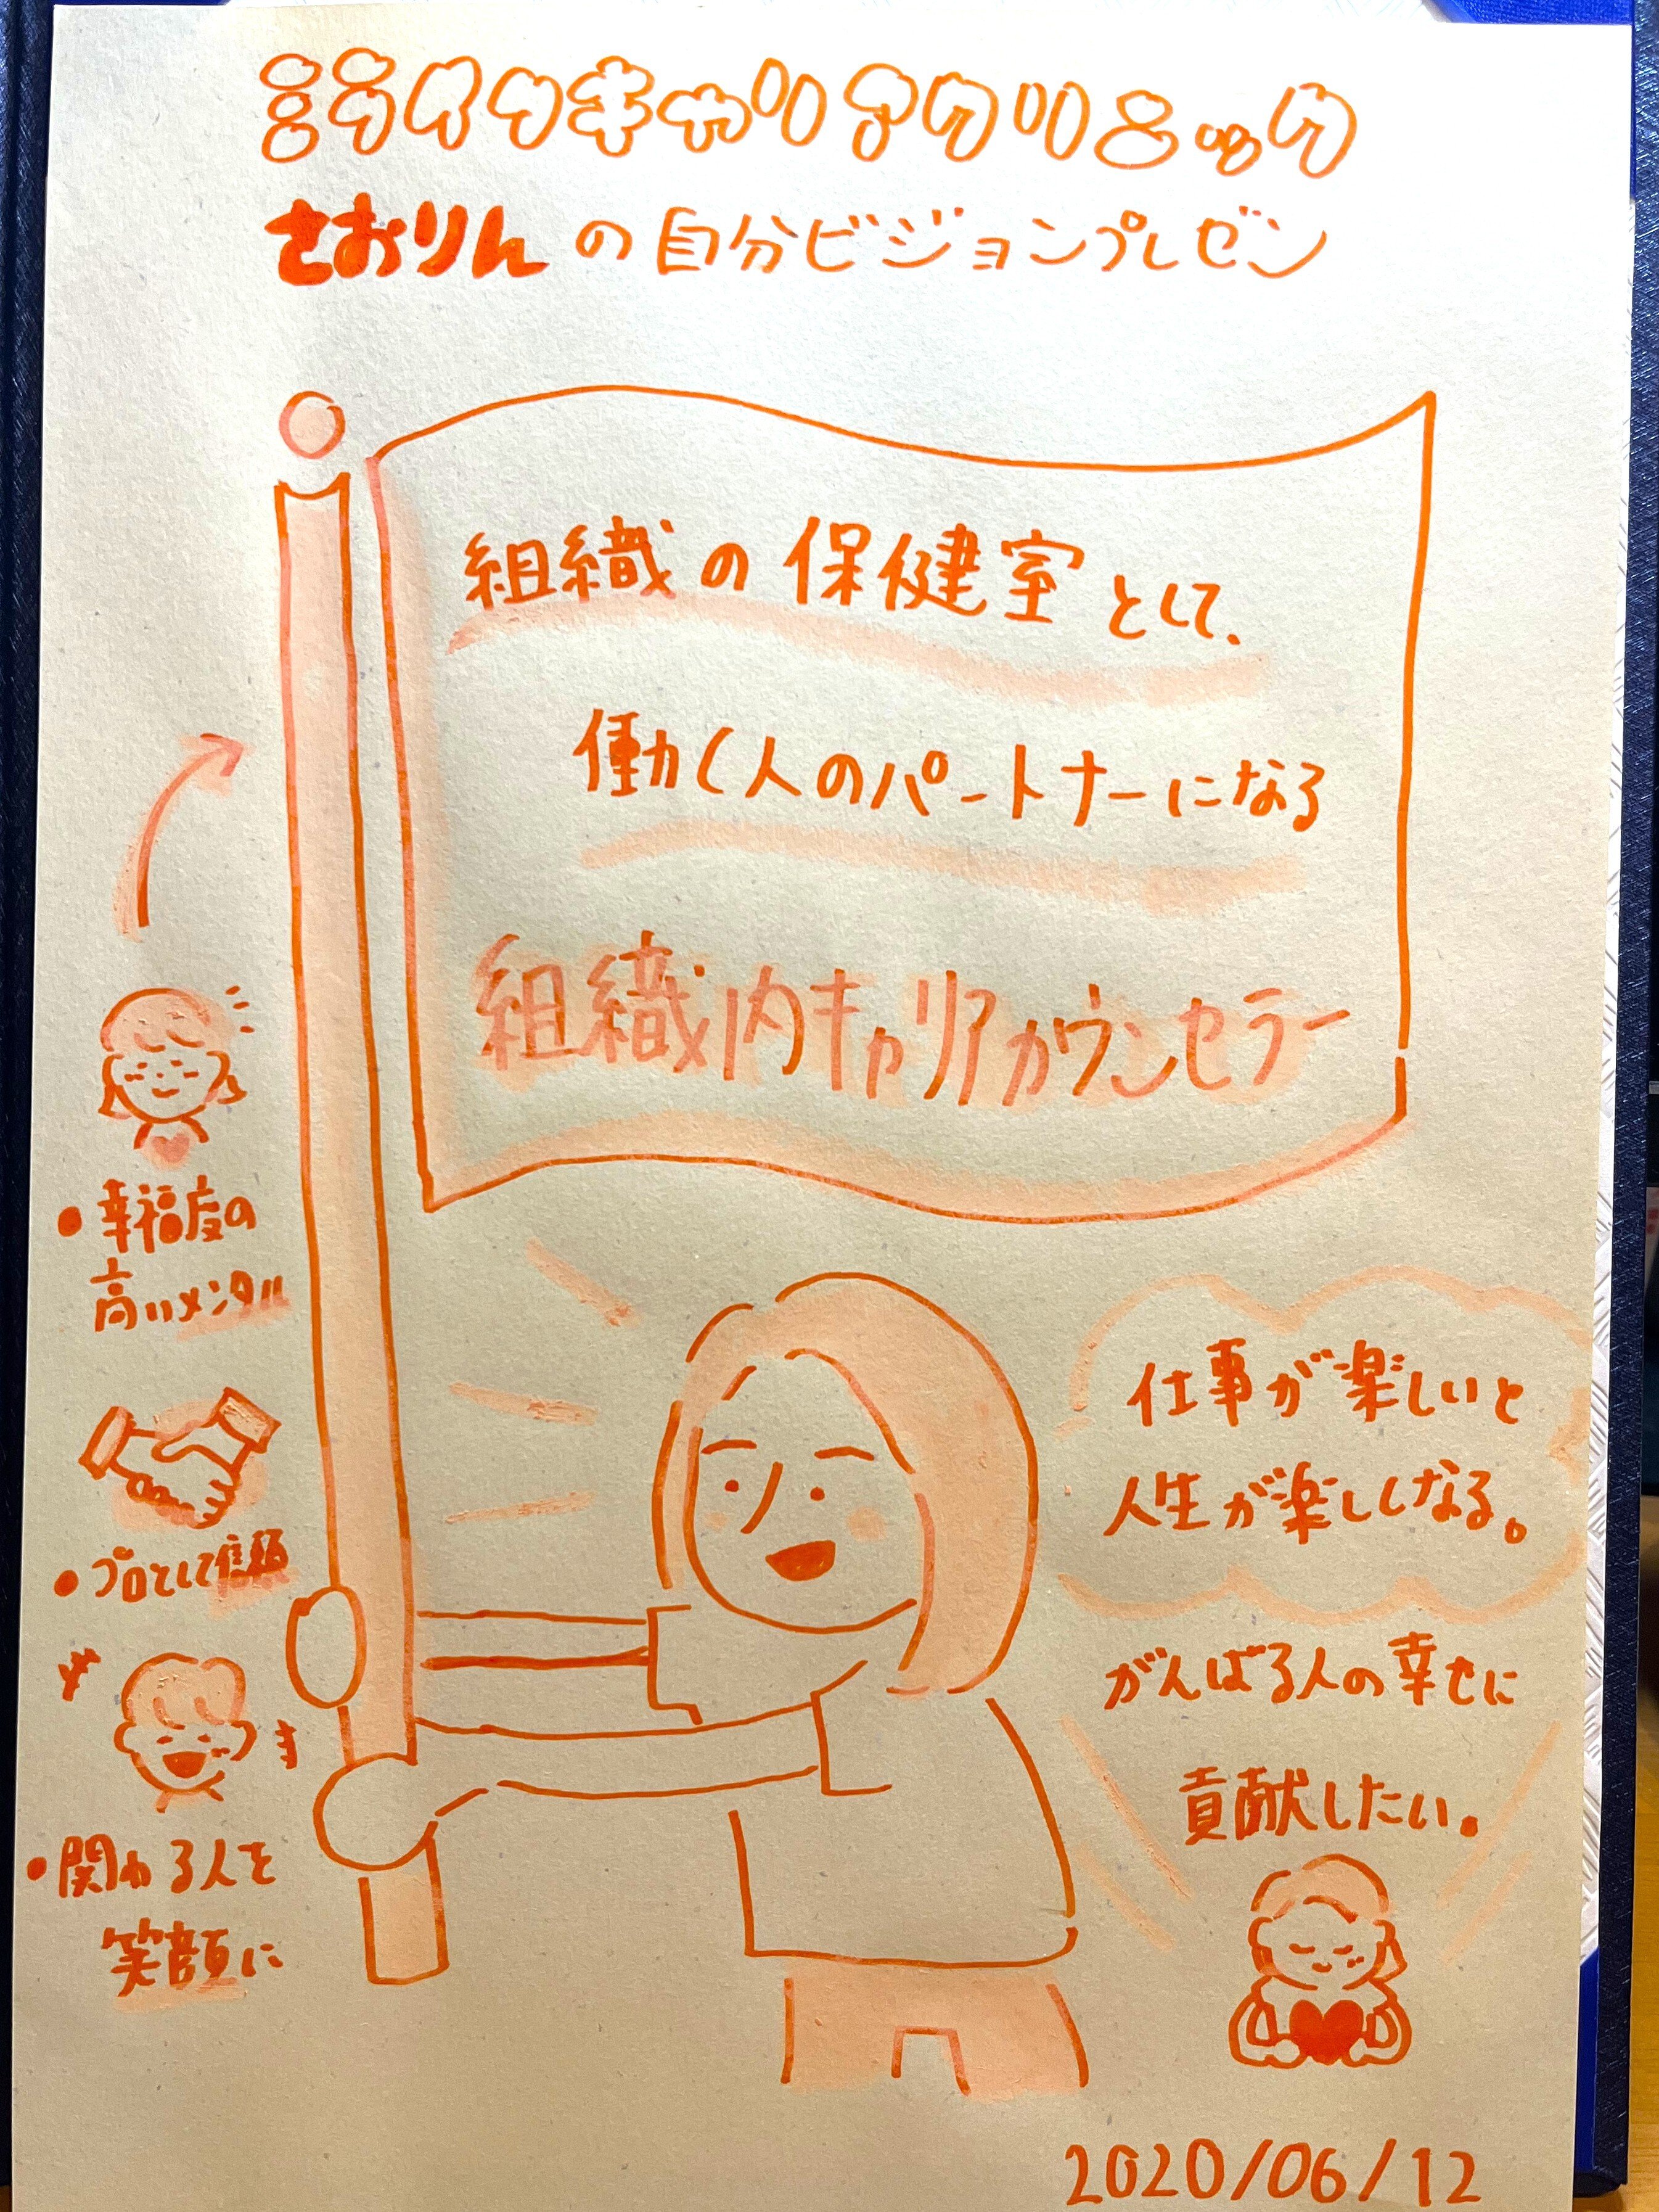 さおりんの自分ビジョンプレゼン
組織の保健室として、
働く人のパートナーになる
組織内キャリアカウンセラー
・幸福度の
高いメンタル
・プロとして信頼
・関わる人を
笑顔に
仕事が楽しいと
人生が楽しくなる。
がんばる人の幸せに
貢献したい。
2020/06/12